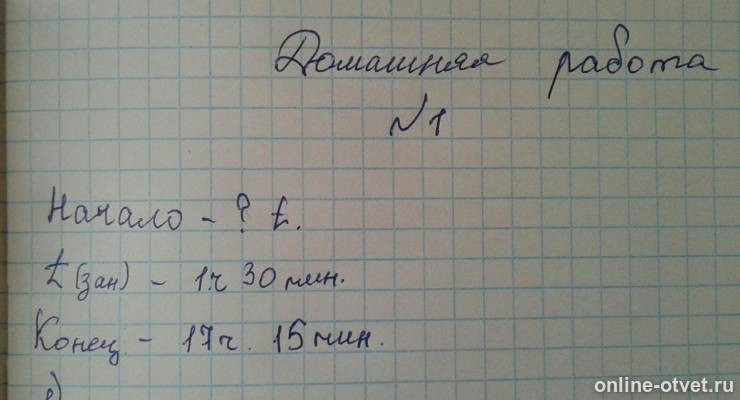 Домашняя работа
№1
Начало - ? t.
t (зан) - 1ч 30 мин.
Конец - 17ч. 15 мин.
online-otvet.ru